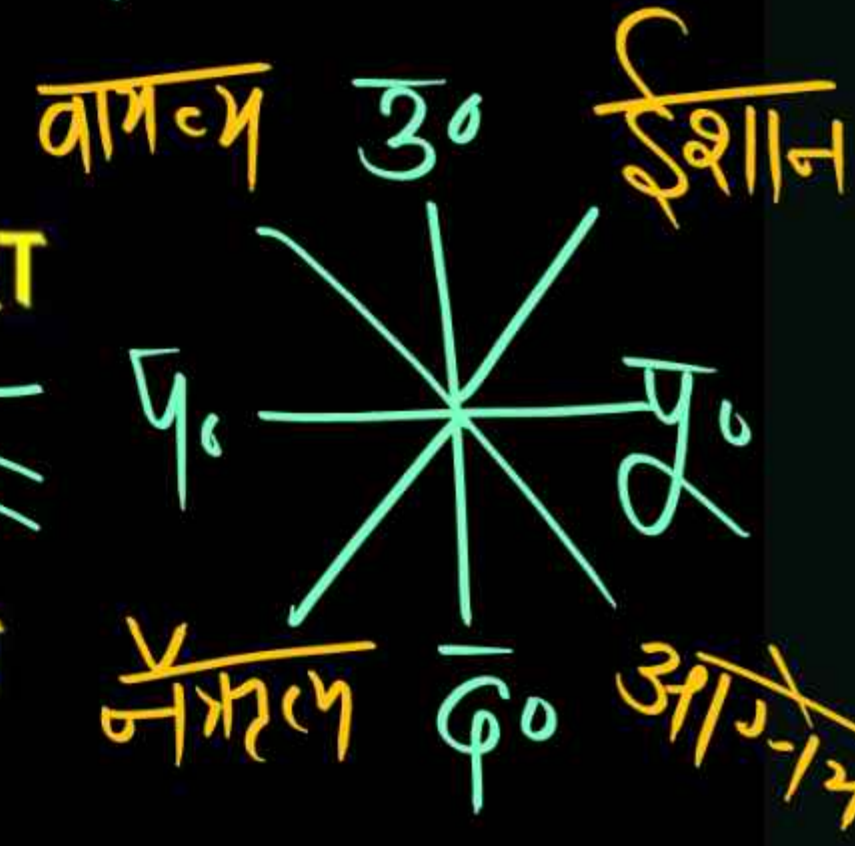 वायव्य उ० ईशान
प० पू०
नैऋत्य द० आग्नेय